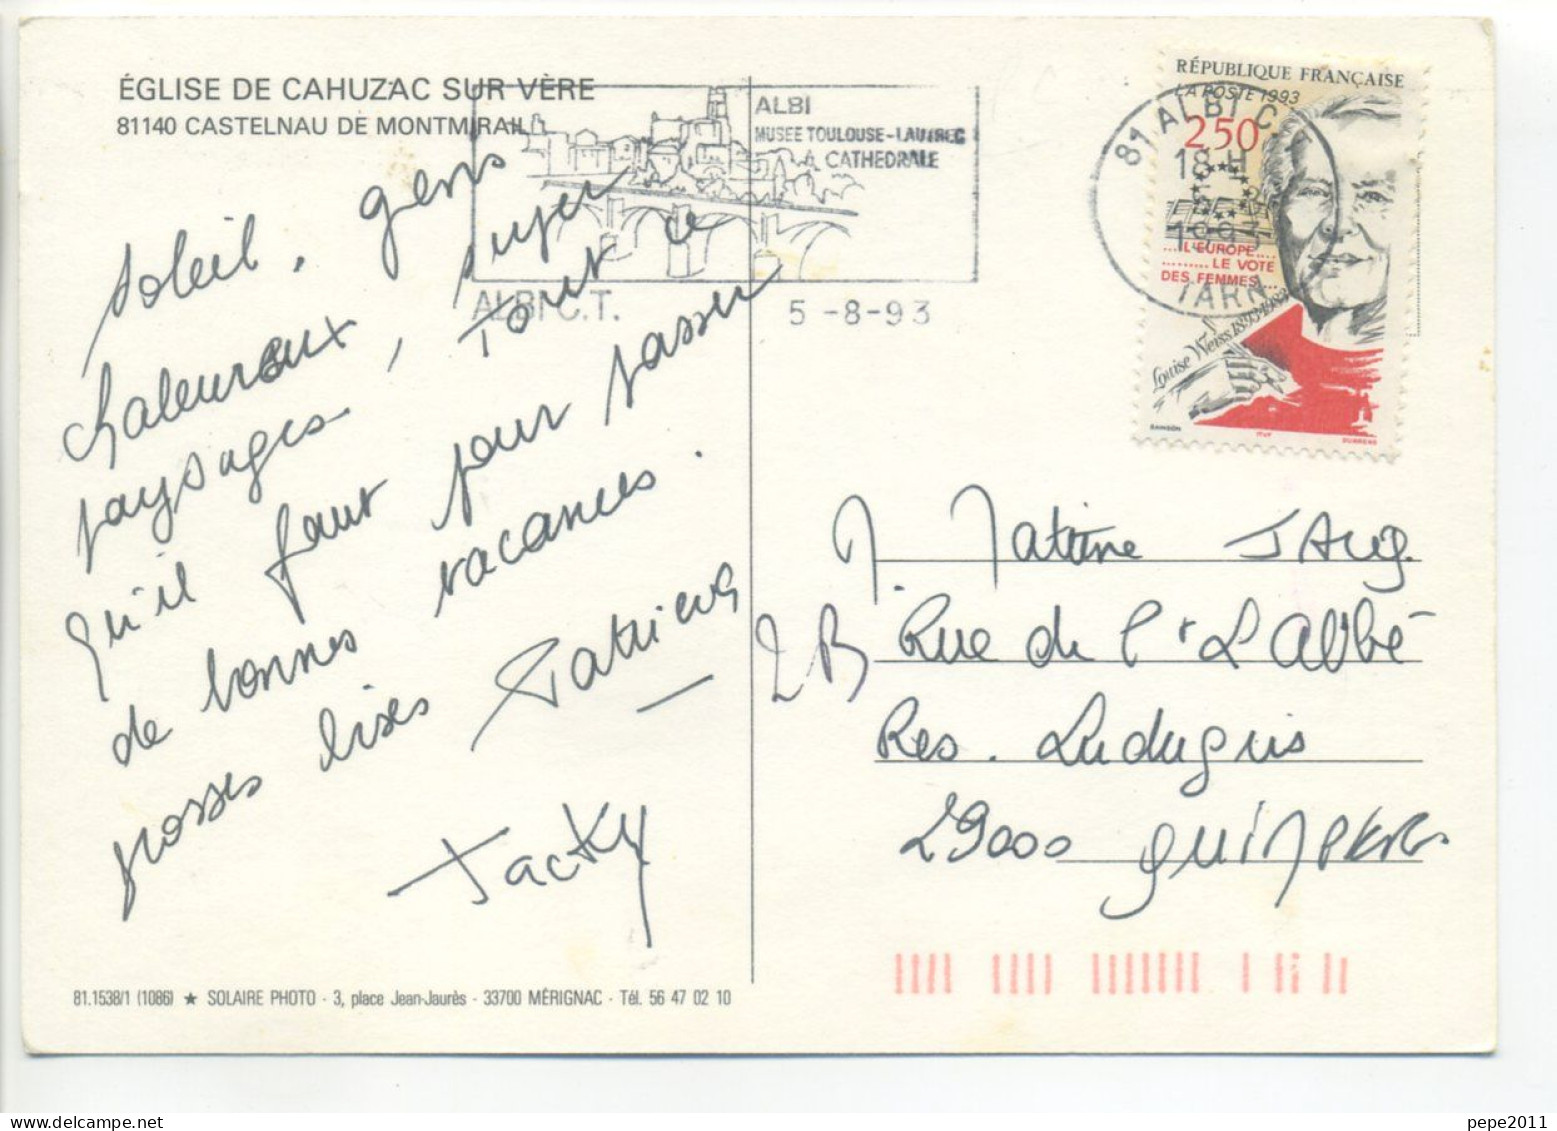 ÉGLISE DE CAHUZAC SUR VÈRE
81140 CASTELNAU DE MONTMIRAIL
ALBI
MUSEE TOULOUSE-LAUTREC
CATHEDRALE
ALBI C.T.
5-8-93
81 ALBI C.T.
18 H
5-8
1993
TARN
RÉPUBLIQUE FRANÇAISE
LA POSTE 1993
2,50
....L'EUROPE....
.........LE VOTE
DES FEMMES....
Louise Weiss 1893-1983
ITVF
DURRENS
Soleil, gens
chaleureux, super
paysages, Tout ce
qu'il faut pour passer
de bonnes vacances.
grosses bises
Jacky
Rue de l'Abbé
Res.
29000 QUIMPER
81.1538/1 (1086) ★ SOLAIRE PHOTO - 3, place Jean-Jaurès - 33700 MÉRIGNAC - Tél. 56 47 02 10
pepe2011